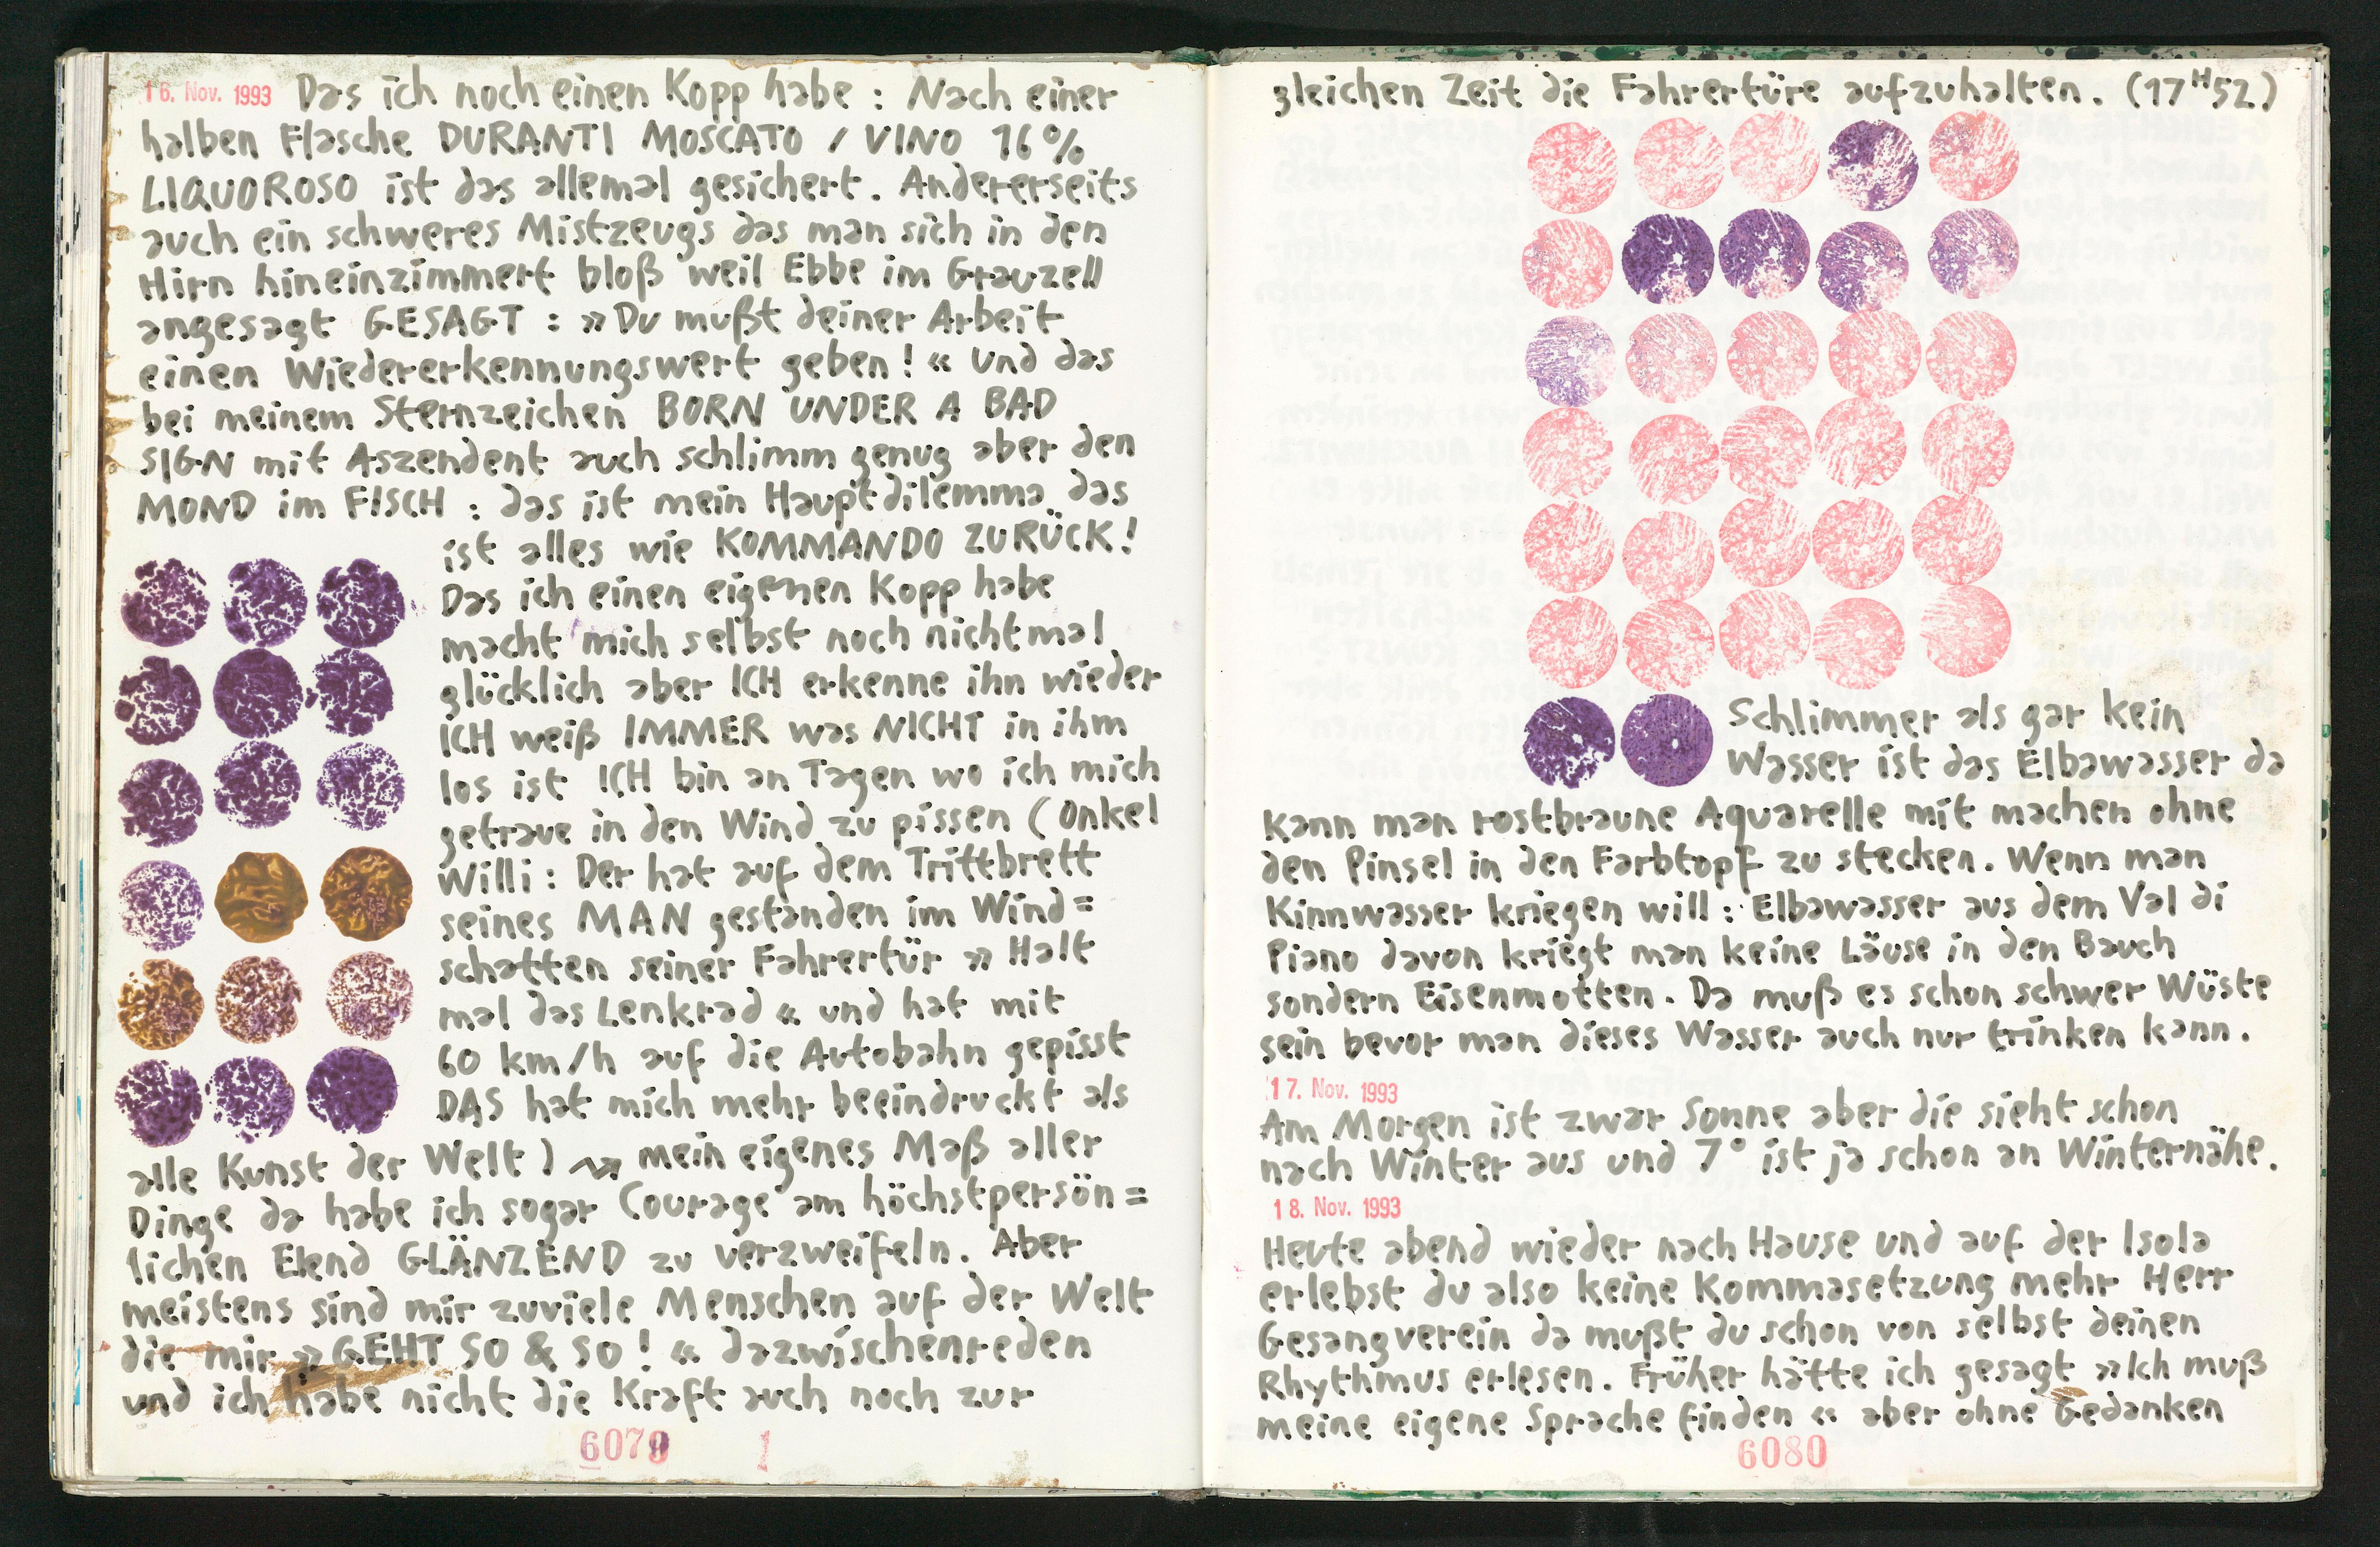 16. Nov. 1993 Das ich noch einen Kopp habe : Nach einer
halben Flasche DURANTI MOSCATO / VINO 16%
LIQUOROSO ist das allemal gesichert. Andererseits
auch ein schweres Mistzeugs das man sich in den
Hirn hineinzimmert bloß weil Ebbe im Grauzell
angesagt GESAGT : »Du mußt deiner Arbeit
einen Wiedererkennungswert geben! « und das
bei meinem Sternzeichen BORN UNDER A BAD
SIGN mit Aszendent auch schlimm genug aber den
MOND im FISCH : das ist mein Hauptdilemma das
ist alles wie KOMMANDO ZURÜCK!
Das ich einen eigenen Kopp habe
macht mich selbst noch nichtmal
glücklich aber ICH erkenne ihn wieder
ICH weiß IMMER was NICHT in ihm
los ist ICH bin an Tagen wo ich mich
getraue in den Wind zu pissen (Onkel
Willi : Der hat auf dem Trittbrett
seines MAN gestanden im Wind=
schatten seiner Fahrertür » Halt
mal das Lenkrad « und hat mit
60 km/h auf die Autobahn gepisst
DAS hat mich mehr beeindruckt als
alle Kunst der Welt) mein eigenes Maß aller
Dinge da habe ich sogar Courage am höchstpersön=
lichen Elend GLÄNZEND zu verzweifeln. Aber
meistens sind mir zuviele Menschen auf der Welt
die mir »GEHT SO & SO! « dazwischenreden
und ich habe nicht die Kraft auch noch zur
6079 1
gleichen Zeit die Fahrertüre aufzuhalten. (17H52)
Schlimmer als gar kein
Wasser ist das Elbawasser da
kann man rostbraune Aquarelle mit machen ohne
den Pinsel in den Farbtopf zu stecken. Wenn man
Kinnwasser kriegen will : Elbawasser aus dem Val di
Piano davon kriegt man keine Läuse in den Bauch
sondern Eisenmotten. Da muß es schon schwer Wüste
sein bevor man dieses Wasser auch nur trinken kann.
17. Nov. 1993
Am Morgen ist zwar Sonne aber die sieht schon
nach Winter aus und 7° ist ja schon an Winternähe.
18. Nov. 1993
Heute abend wieder nach Hause und auf der Isola
erlebst du also keine Kommasetzung mehr Herr
Gesangverein da mußt du schon von selbst deinen
Rhythmus erlesen. Früher hätte ich gesagt »Ich muß
meine eigene Sprache finden « aber ohne Gedanken
6080